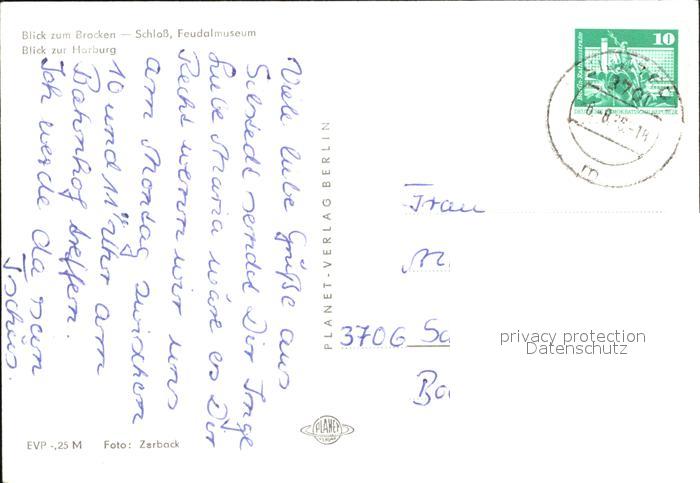 Blick zum Brocken — Schloß, Feudalmuseum
Blick zur Harburg
Viele liebe Grüße aus
sendet Dir Inge
Liebe Maria wäre es Dir
Recht wenn wir uns
am Montag zwischen
10 und 11 Uhr am
Bahnhof treffen.
Ich werde da sein
Tschüs.
EVP -,25 M Foto: Zerback
PLANET-VERLAG BERLIN
PLANET
VERLAG
10
Berlin-Rathausstraße
DEUTSCHE DEMOKRATISCHE REPUBLIK
3700
6.8.
m
Frau
M
3706 Sc
Bo
privacy protection
Datenschutz